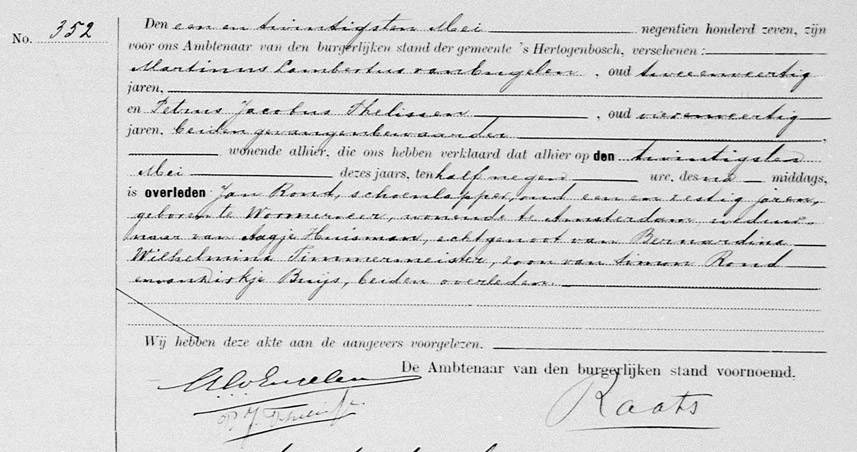 No. 352
Den een en twintigsten Mei negentien honderd zeven, zijn
voor ons Ambtenaar van den burgerlijken stand der gemeente 's Hertogenbosch, verschenen:
Martinus Lambertus van Engelen, oud tweeenveertig
jaren,
en Petrus Jacobus Thelissen, oud vierenveertig
jaren, beiden gevangenbewaarder,
wonende alhier, die ons hebben verklaard dat alhier op den twintigsten
Mei dezes jaars, ten half negen ure, des na middags,
is overleden Jan Rond, schoenlapper, oud een en zestig jaren,
geboren te Wormerveer, wonende te Amsterdam, wedu-
naar van Aagje Huisman, echtgenoot van Bernardina
Wilhelmina Timmermeister, zoon van Simon Rond
en van Dirkje Buijs, beiden overleden.
Wij hebben deze akte aan de aangevers voorgelezen.
De Ambtenaar van den burgerlijken stand voornoemd.
Raats